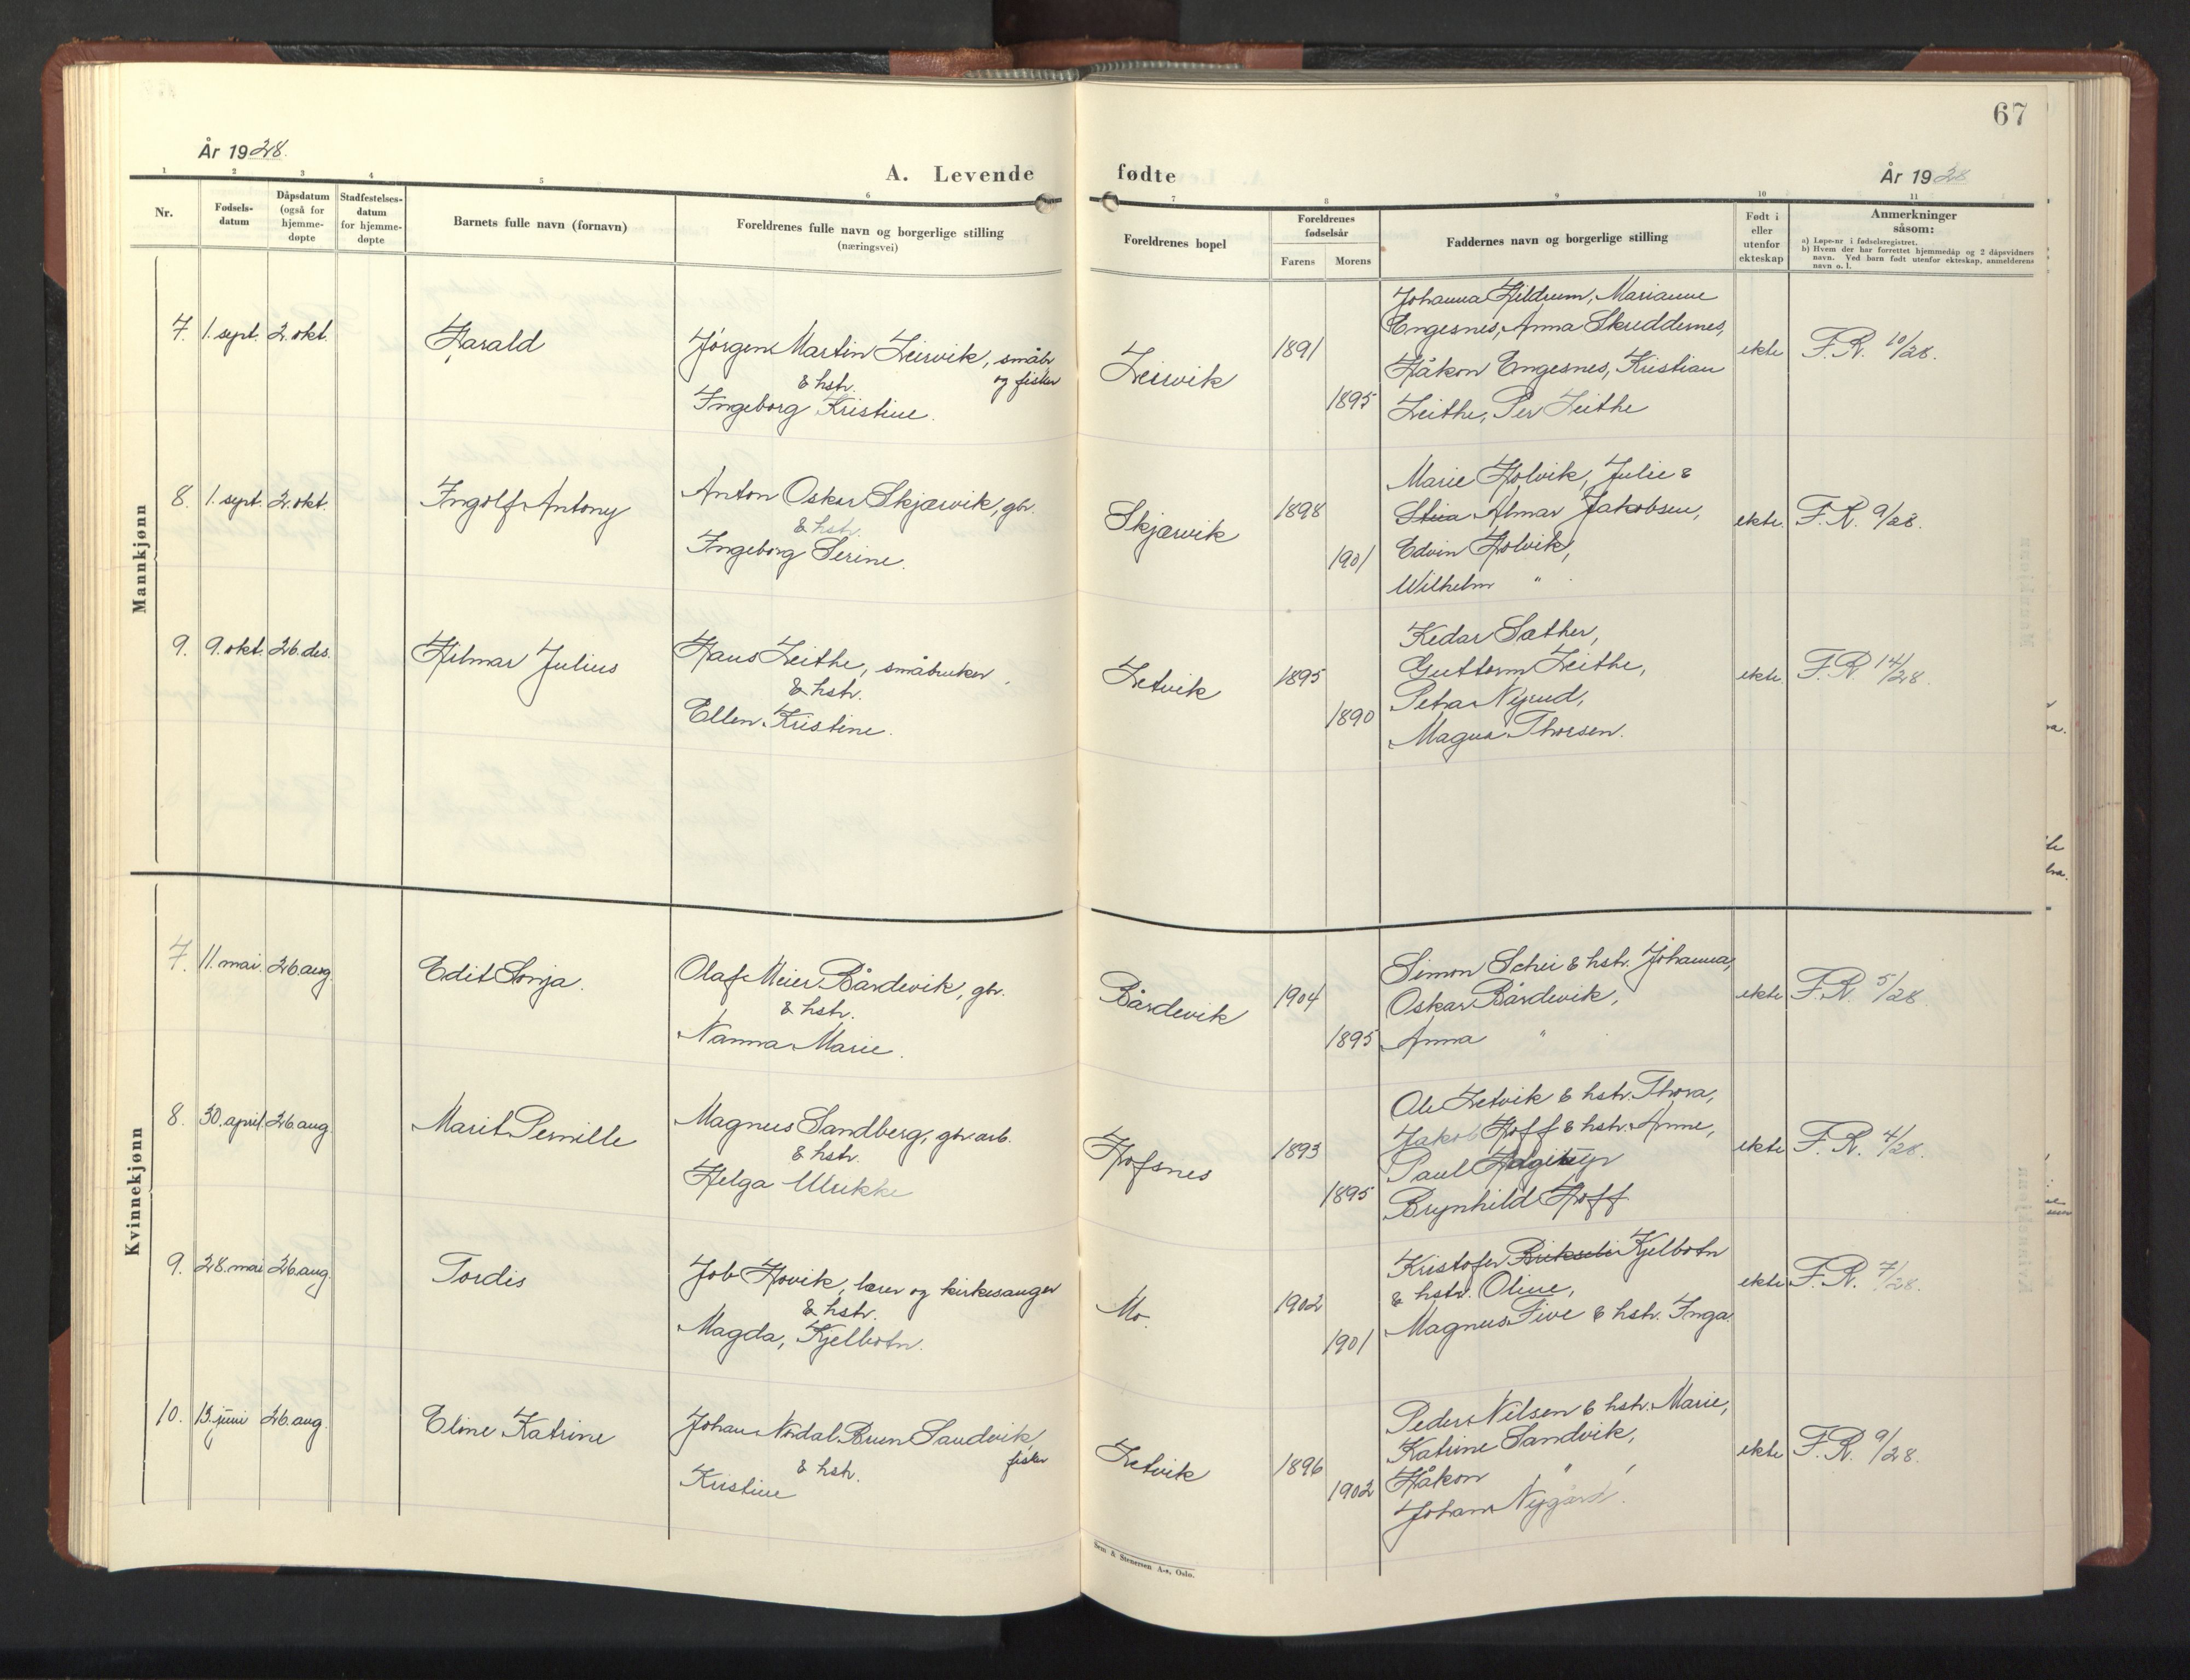 67
År 1928.
A. Levende
fødte
År 1928
1 2 3 4 5 6 7 8 9 10 11
Nr.
Fødsels-
datum
Dåpsdatum
(også for
hjemme-
døpte
Stadfestelses-
datum
for hjemme-
døpte
Barnets fulle navn (fornavn)
Foreldrenes fulle navn og borgerlige stilling
(næringsvei)
Foreldrenes bopel
Foreldrenes
fødselsår
Farens Morens
Faddernes navn og borgerlige stilling
Født i
eller
utenfor
ekteskap
Anmerkninger
såsom:
a) Løpe-nr i fødselsregistret.
b) Hvem der har forrettet hjemmedåp og 2 dåpsvidners
navn. Ved barn født utenfor ekteskap, anmelderens
navn o. l.
Mannkjønn
7. 1. sept. 2. okt.
Harald
Jørgen Martin Leirvik, småbr.
& hstr. og fisker
Ingeborg Kristine.
Leirvik
1891
1895
Johanna Hildrum, Marianne
Engesnes, Anna Skreddernes,
Håkon Engesnes, Kristian
Leithe, Per Leithe
ekte
F.R. 10/28.
8. 1. sept. 2. okt.
Ingolf Antony
Anton Oskar Skjærvik, gbr.
& hstr.
Ingeborg Serine.
Skjærvik
1898
1901
Marie Holvik, Julie &
Almar Jakobsen,
Edvin Holvik,
Wilhelm "
ekte.
F.R. 9/28.
9. 9. okt. 26. des.
Hilmar Julius
Hans Leithe, småbruker
& hstr.
Ellen Kristine.
Letvik
1895
1890
Kedar Sæther,
Guttorm Leithe,
Petra Nyrud,
Magna Thorsen.
ekte.
F.R 14/28.
Kvinnekjønn
7. 11. mai. 26. aug.
Edit Sonja.
Olaf Meier Bårdevik, gbr.
& hstr.
Nanna Marie.
Bårdevik
1904
1895
Simon Schei & hstr. Johanna,
Oskar Bårdevik,
Anna "
ekte
F.R. 5/28.
8. 30. april. 26. aug.
Marit Pernille
Magnus Sandberg, gbr. arb.
& hstr.
Helga Ulrikke
Hofsnes
1893
1895
Ole Letvik & hstr. Thora,
Jakob Hoff & hstr. Anne,
Paul
Brynhild Hoff.
ekte
F.R. 4/28.
9. 28. mai 26. aug.
Tordis
Job Hovik, lærer og kirkesanger
& hstr.
Magda, Kjelbotn.
Mo.
1902
1901
Kristofer Kjelbotn
& hstr. Oline,
Magnus Five & hstr. Inga.
ekte
F.R. 7/28.
10. 13. juni 26. aug.
Eline Katrine
Johan Nordal Brun Sandvik,
& hstr. fisker
Kristine
Letvik
1896
1902
Peder Nilsen & hstr. Marie,
Katrine Sandvik,
Håkon "
Johan Nygård.
ekte
F.R. 9/28.
Sem & Stenersen A-s, Oslo.